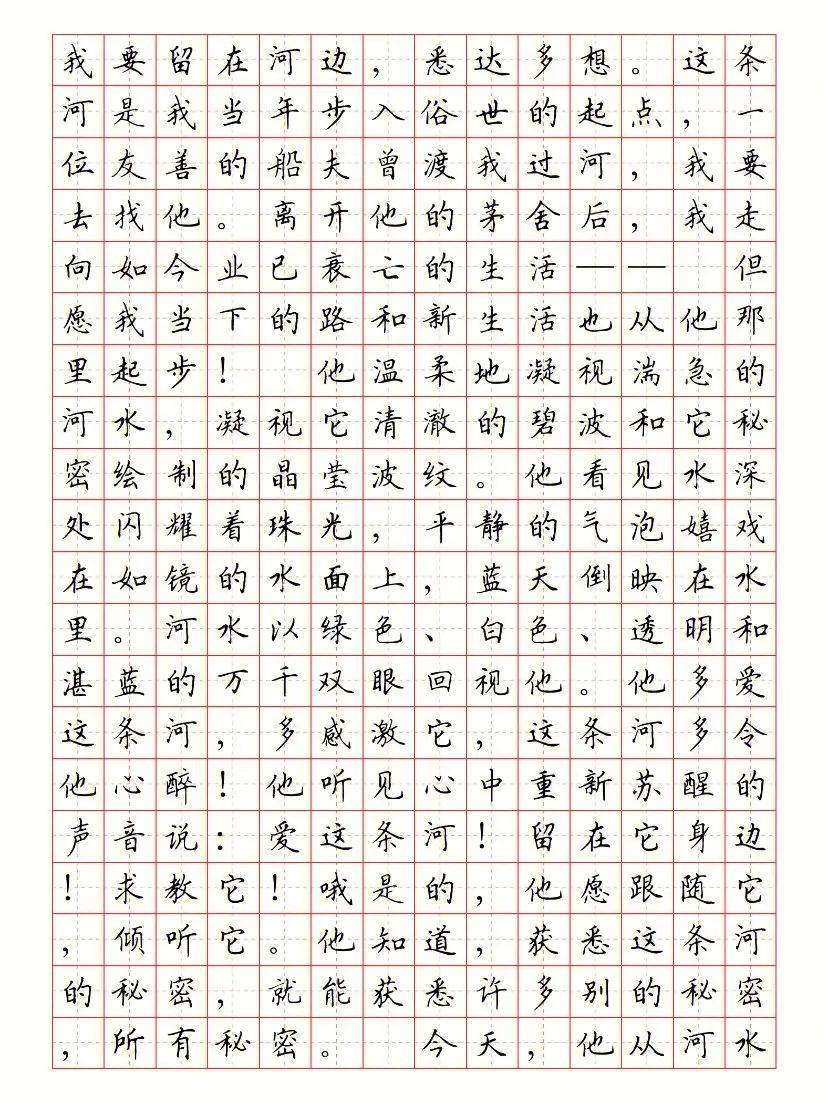 我要留在河边，悉达多想。这条
河是我当年步入俗世的起点，一
位友善的船夫曾渡我过河，我要
去找他。离开他的茅舍后，我走
向如今业已衰亡的生活—— 但
愿我当下的路和新生活也从他那
里起步！ 他温柔地凝视湍急的
河水，凝视它清澈的碧波和它秘
密绘制的晶莹波纹。他看见水深
处闪耀着珠光，平静的气泡嬉戏
在如镜的水面上，蓝天倒映在水
里。河水以绿色、白色、透明和
湛蓝的万千双眼回视他。他多爱
这条河，多感激它，这条河多令
他心醉！他听见心中重新苏醒的
声音说：爱这条河！留在它身边
！求教它！哦是的，他愿跟随它
，倾听它。他知道，获悉这条河
的秘密，就能获悉许多别的秘密
，所有秘密。 今天，他从河水